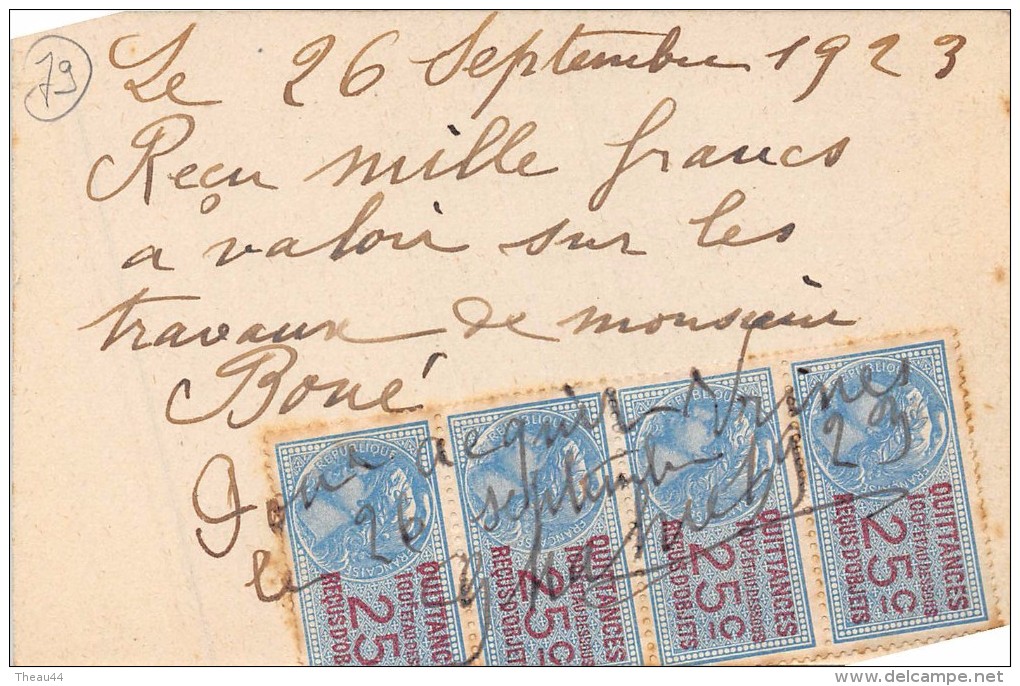 79
Le 26 Septembre 1923
Reçu mille francs
a valoir sur les
travaux de monsieur
Boué
Pour acquit Vrines
le 26 septembre 1923
REPUBLIQUE FRANÇAISE
QUITTANCES
REÇUS D'OBJETS
25 c
REPUBLIQUE FRANÇAISE
QUITTANCES
REÇUS D'OBJETS
25 c
REPUBLIQUE FRANÇAISE
QUITTANCES
REÇUS D'OBJETS
25 c
REPUBLIQUE FRANÇAISE
QUITTANCES
REÇUS D'OBJETS
25 c
Theau44
delcampe.net